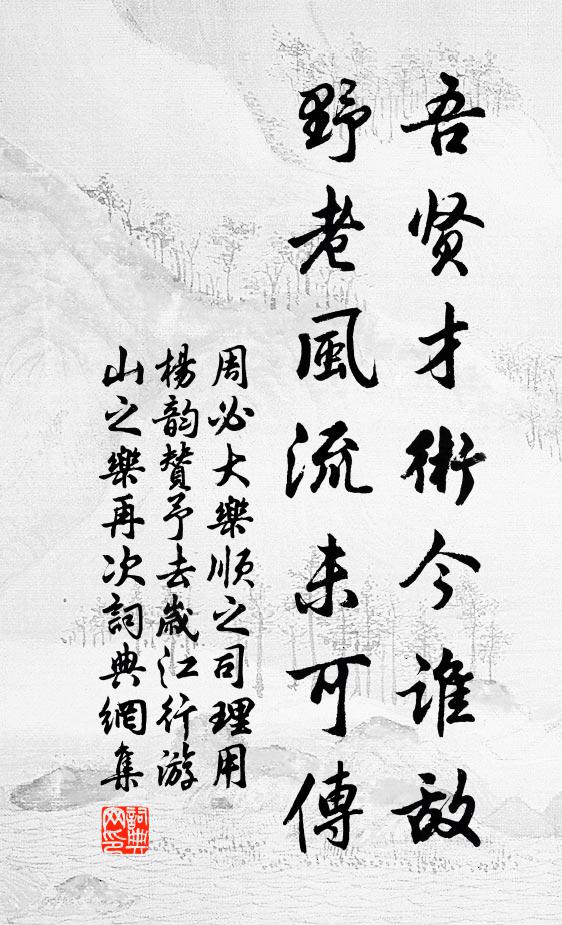 吾贤才術今谁敌
野老風流未可傳
周必大樂顺之司理用
楊韵赞予去歲江行游
山之樂再次詞典網集
詞典网印